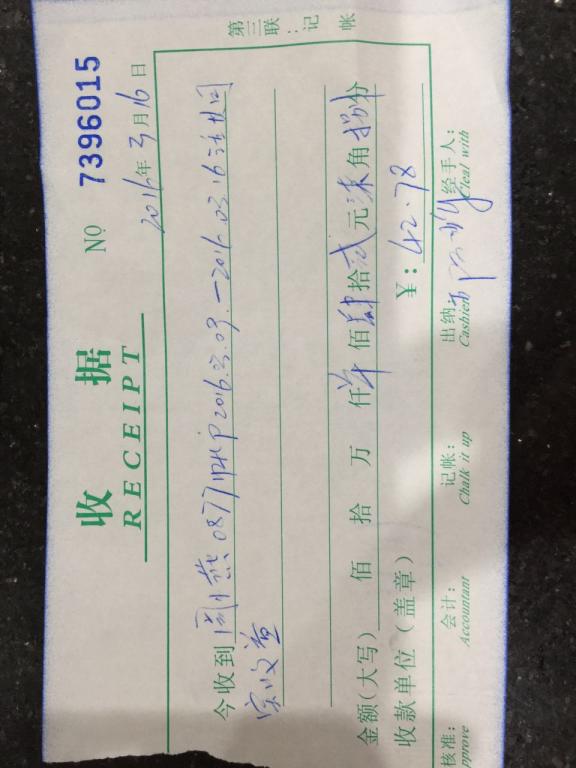 第三联：记帐
收据 NO 7396015
RECEIPT
2016年3月16日
今收到 周燕0877账户2016.03.09.—2016.03.16活期
实收益
金额(大写) 佰拾万仟零佰肆拾贰元柒角捌分
收款单位(盖章) ¥：42.78
核准： 会计： 记帐： 出纳： 经手人：
pprove Accountant Chalk it up Cashier Cleal with